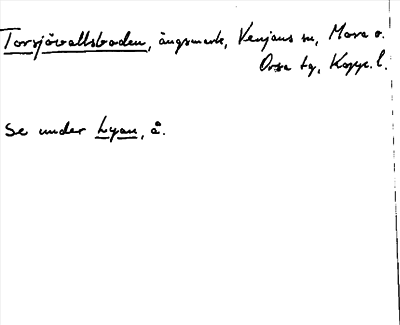 Torsjövallsboden, ängsmark, Venjans sn, Mora o.
Orsa tg, Kopp. l.
Se under Lyan, å.